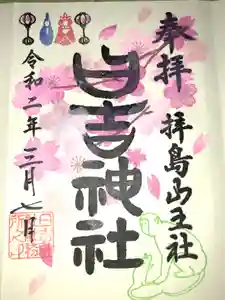 奉拝
拝島山王社
日吉神社
令和二年三月七日